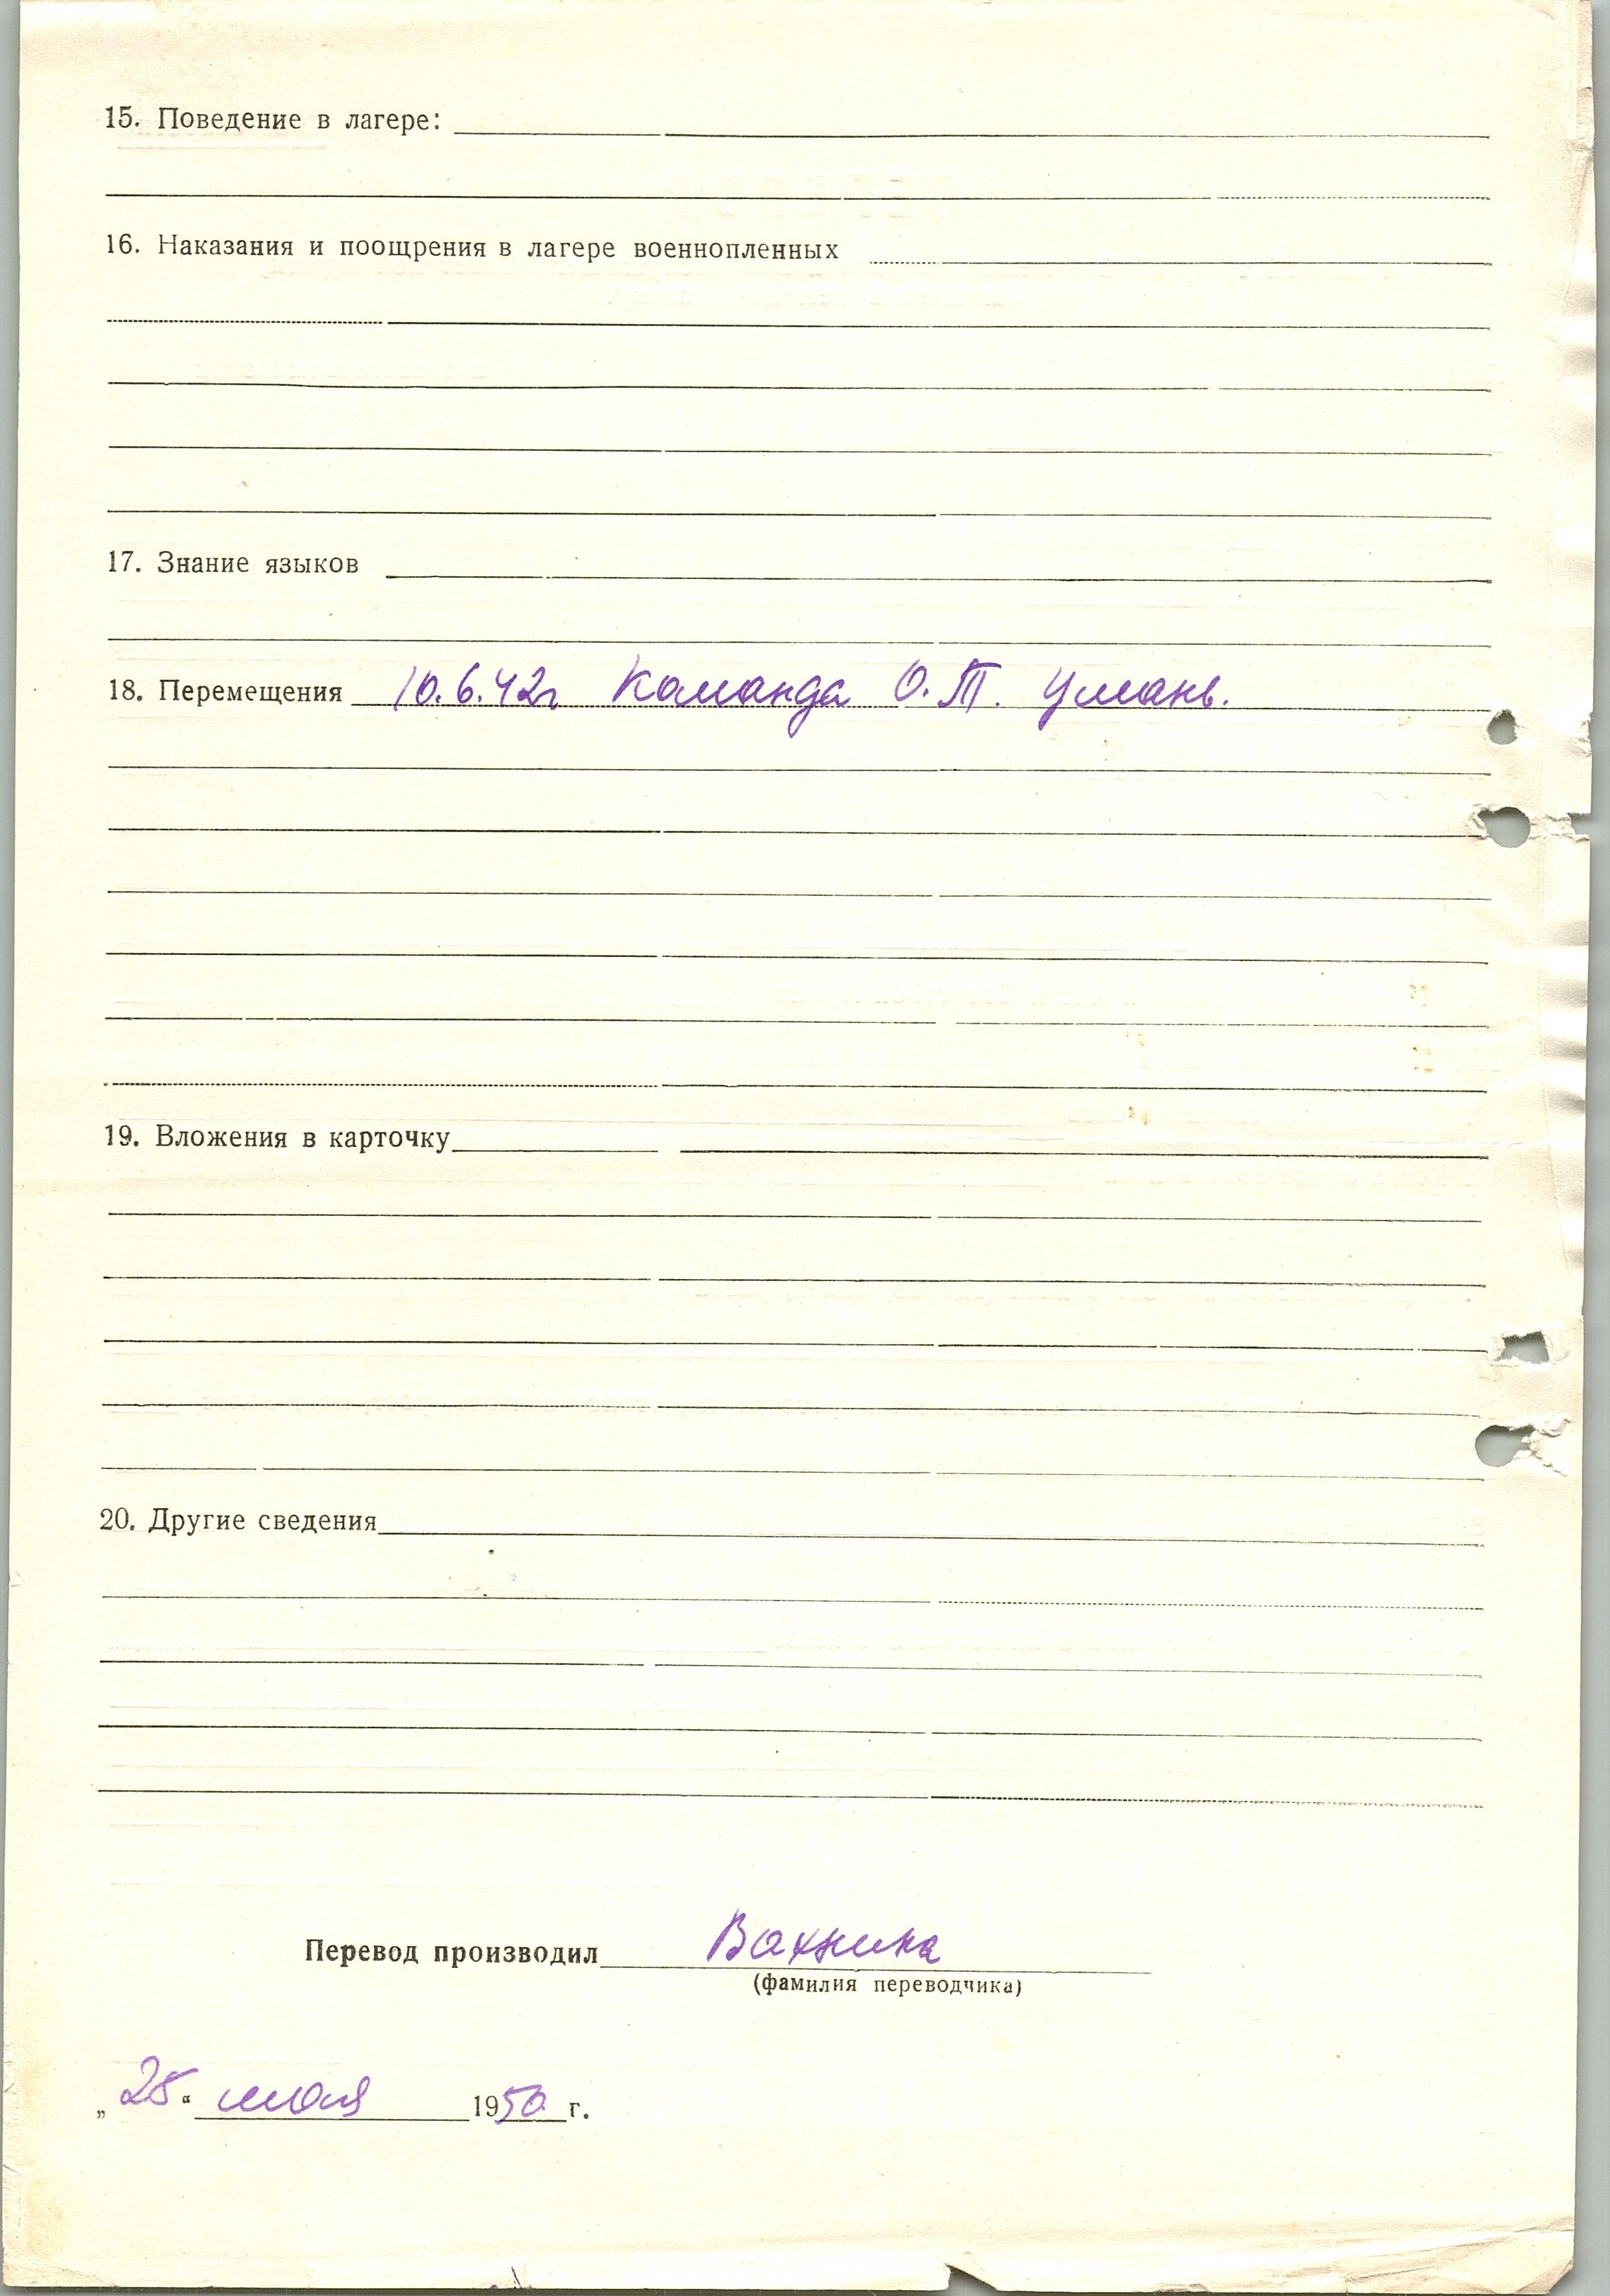 15. Поведение в лагере:
16. Наказания и поощрения в лагере военнопленных
17. Знание языков
18. Перемещения 10.6.42г Команда О.Т. Умань.
19. Вложения в карточку
20. Другие сведения
Перевод производил Вахнина
(фамилия переводчика)
„25“ мая 1950 г.